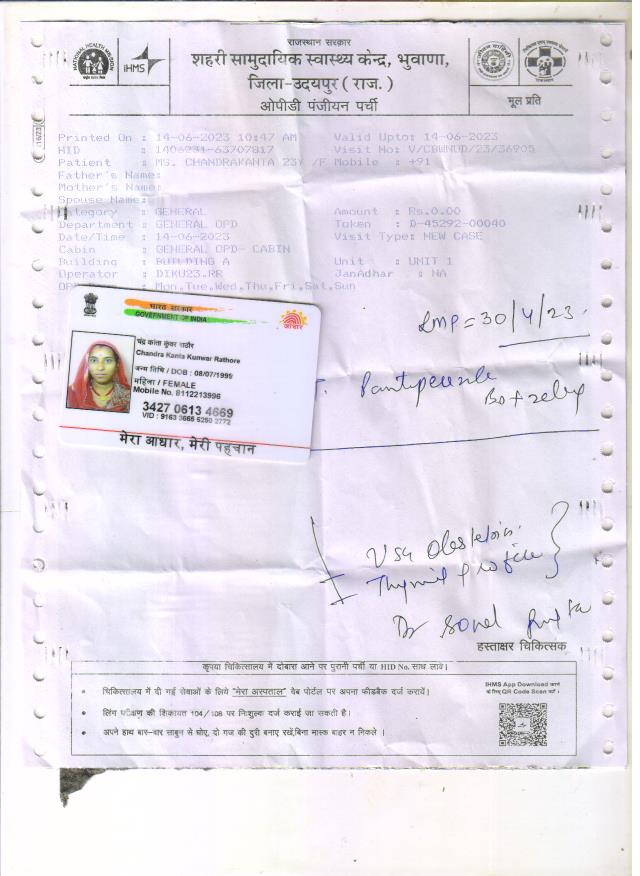 राजस्थान सरकार
शहरी सामुदायिक स्वास्थ्य केन्द्र, भुवाणा,
जिला-उदयपुर ( राज. )
ओपीडी पंजीयन पर्ची
NATIONAL HEALTH MISSION
iHMS
मूल प्रति
Printed On : 14-06-2023 10:47 AM Valid Upto: 14-06-2023
HID : Visit No: V/CBWNUD/23/36905
Patient : MS. CHANDRAKANTA 23Y /F Mobile : +91
Father's Name:
Mother's Name:
Spouse Name:
Category : GENERAL Amount : Rs.0.00
Department : GENERAL OPD Token : D-45292-00040
Date/Time : 14-06-2023 Visit Type: NEW CASE
Cabin : GENERAL OPD- CABIN
Building : BUILDING A Unit : UNIT 1
Operator : DIKU23.RR JanAadhar : NA
Mon,Tue,Wed,Thu,Fri,Sat,Sun
भारत सरकार
GOVERNMENT OF INDIA
आधार
चंद्र कांता कुंवर राठौर
Chandra Kanta Kunwar Rathore
जन्म तिथि / DOB : 08/07/1999
महिला / FEMALE
Mobile No. 8112213996
3427 0613 4669
VID : 9163 3665 5250 2772
मेरा आधार, मेरी पहचान
LMP = 30/4/23
USG Obstetric
Thyroid profile
Dr Sonal Gupta
हस्ताक्षर चिकित्सक
कृपया चिकित्सालय में दोबारा आने पर पुरानी पर्ची या HID No. साथ लावें।
चिकित्सालय में दी गई सेवाओं के लिये "मेरा अस्पताल" वेब पोर्टल पर अपना फीडबैक दर्ज करावें।
लिंग परीक्षण की शिकायत 104/108 पर निःशुल्क दर्ज कराई जा सकती है।
अपने हाथ बार-बार साबुन से धोए, दो गज की दुरी बनाए रखें,बिना मास्क बाहर न निकले ।
IHMS App Download करने
के लिए QR Code Scan करें ।